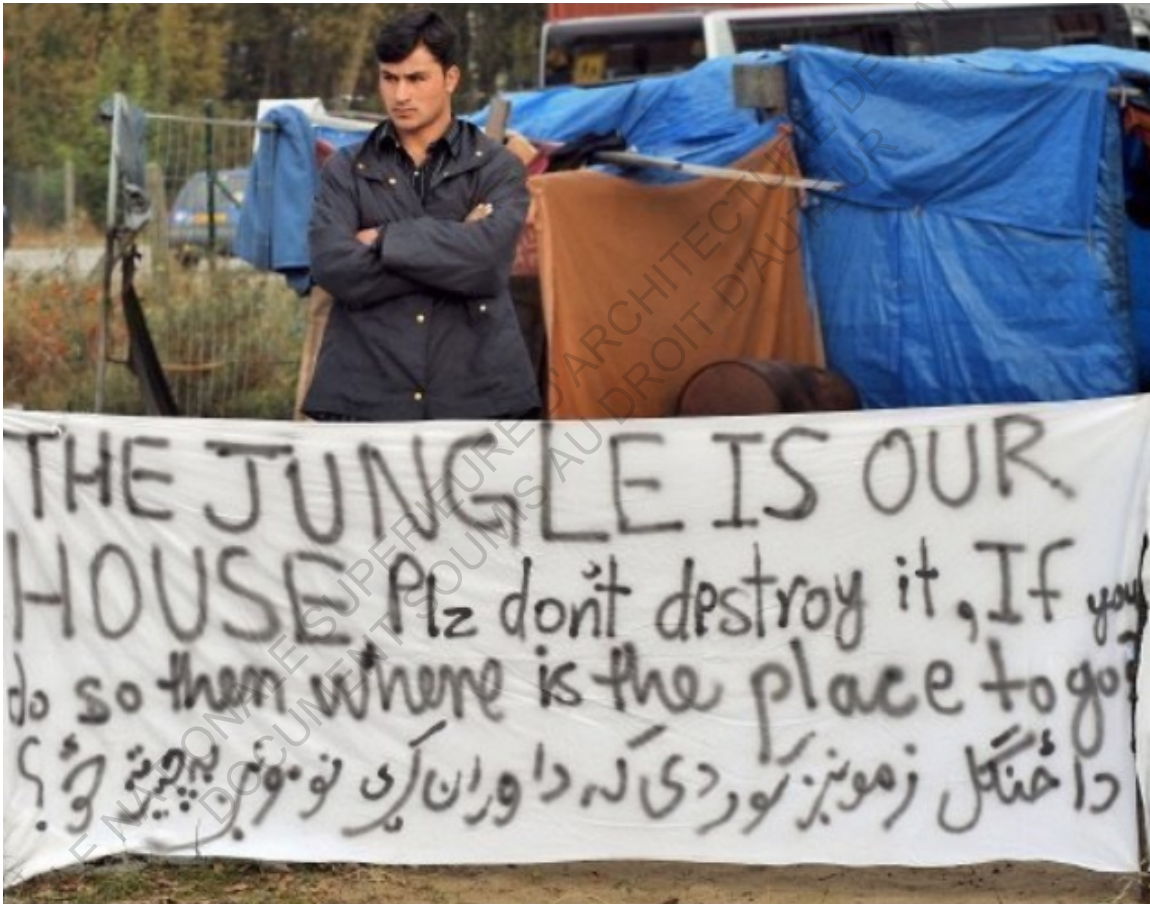 THE JUNGLE IS OUR
HOUSE Plz don't destroy it, If you
do so then where is the place to go?
دا ځنګل زموږ کور دی که دا وران کړی نو موږ به چیرته ځو؟
E NATIONALE SUPERIEURE D'ARCHITECTURE DE
DOCUMENT SOUMIS AU DROIT D'AUTEUR